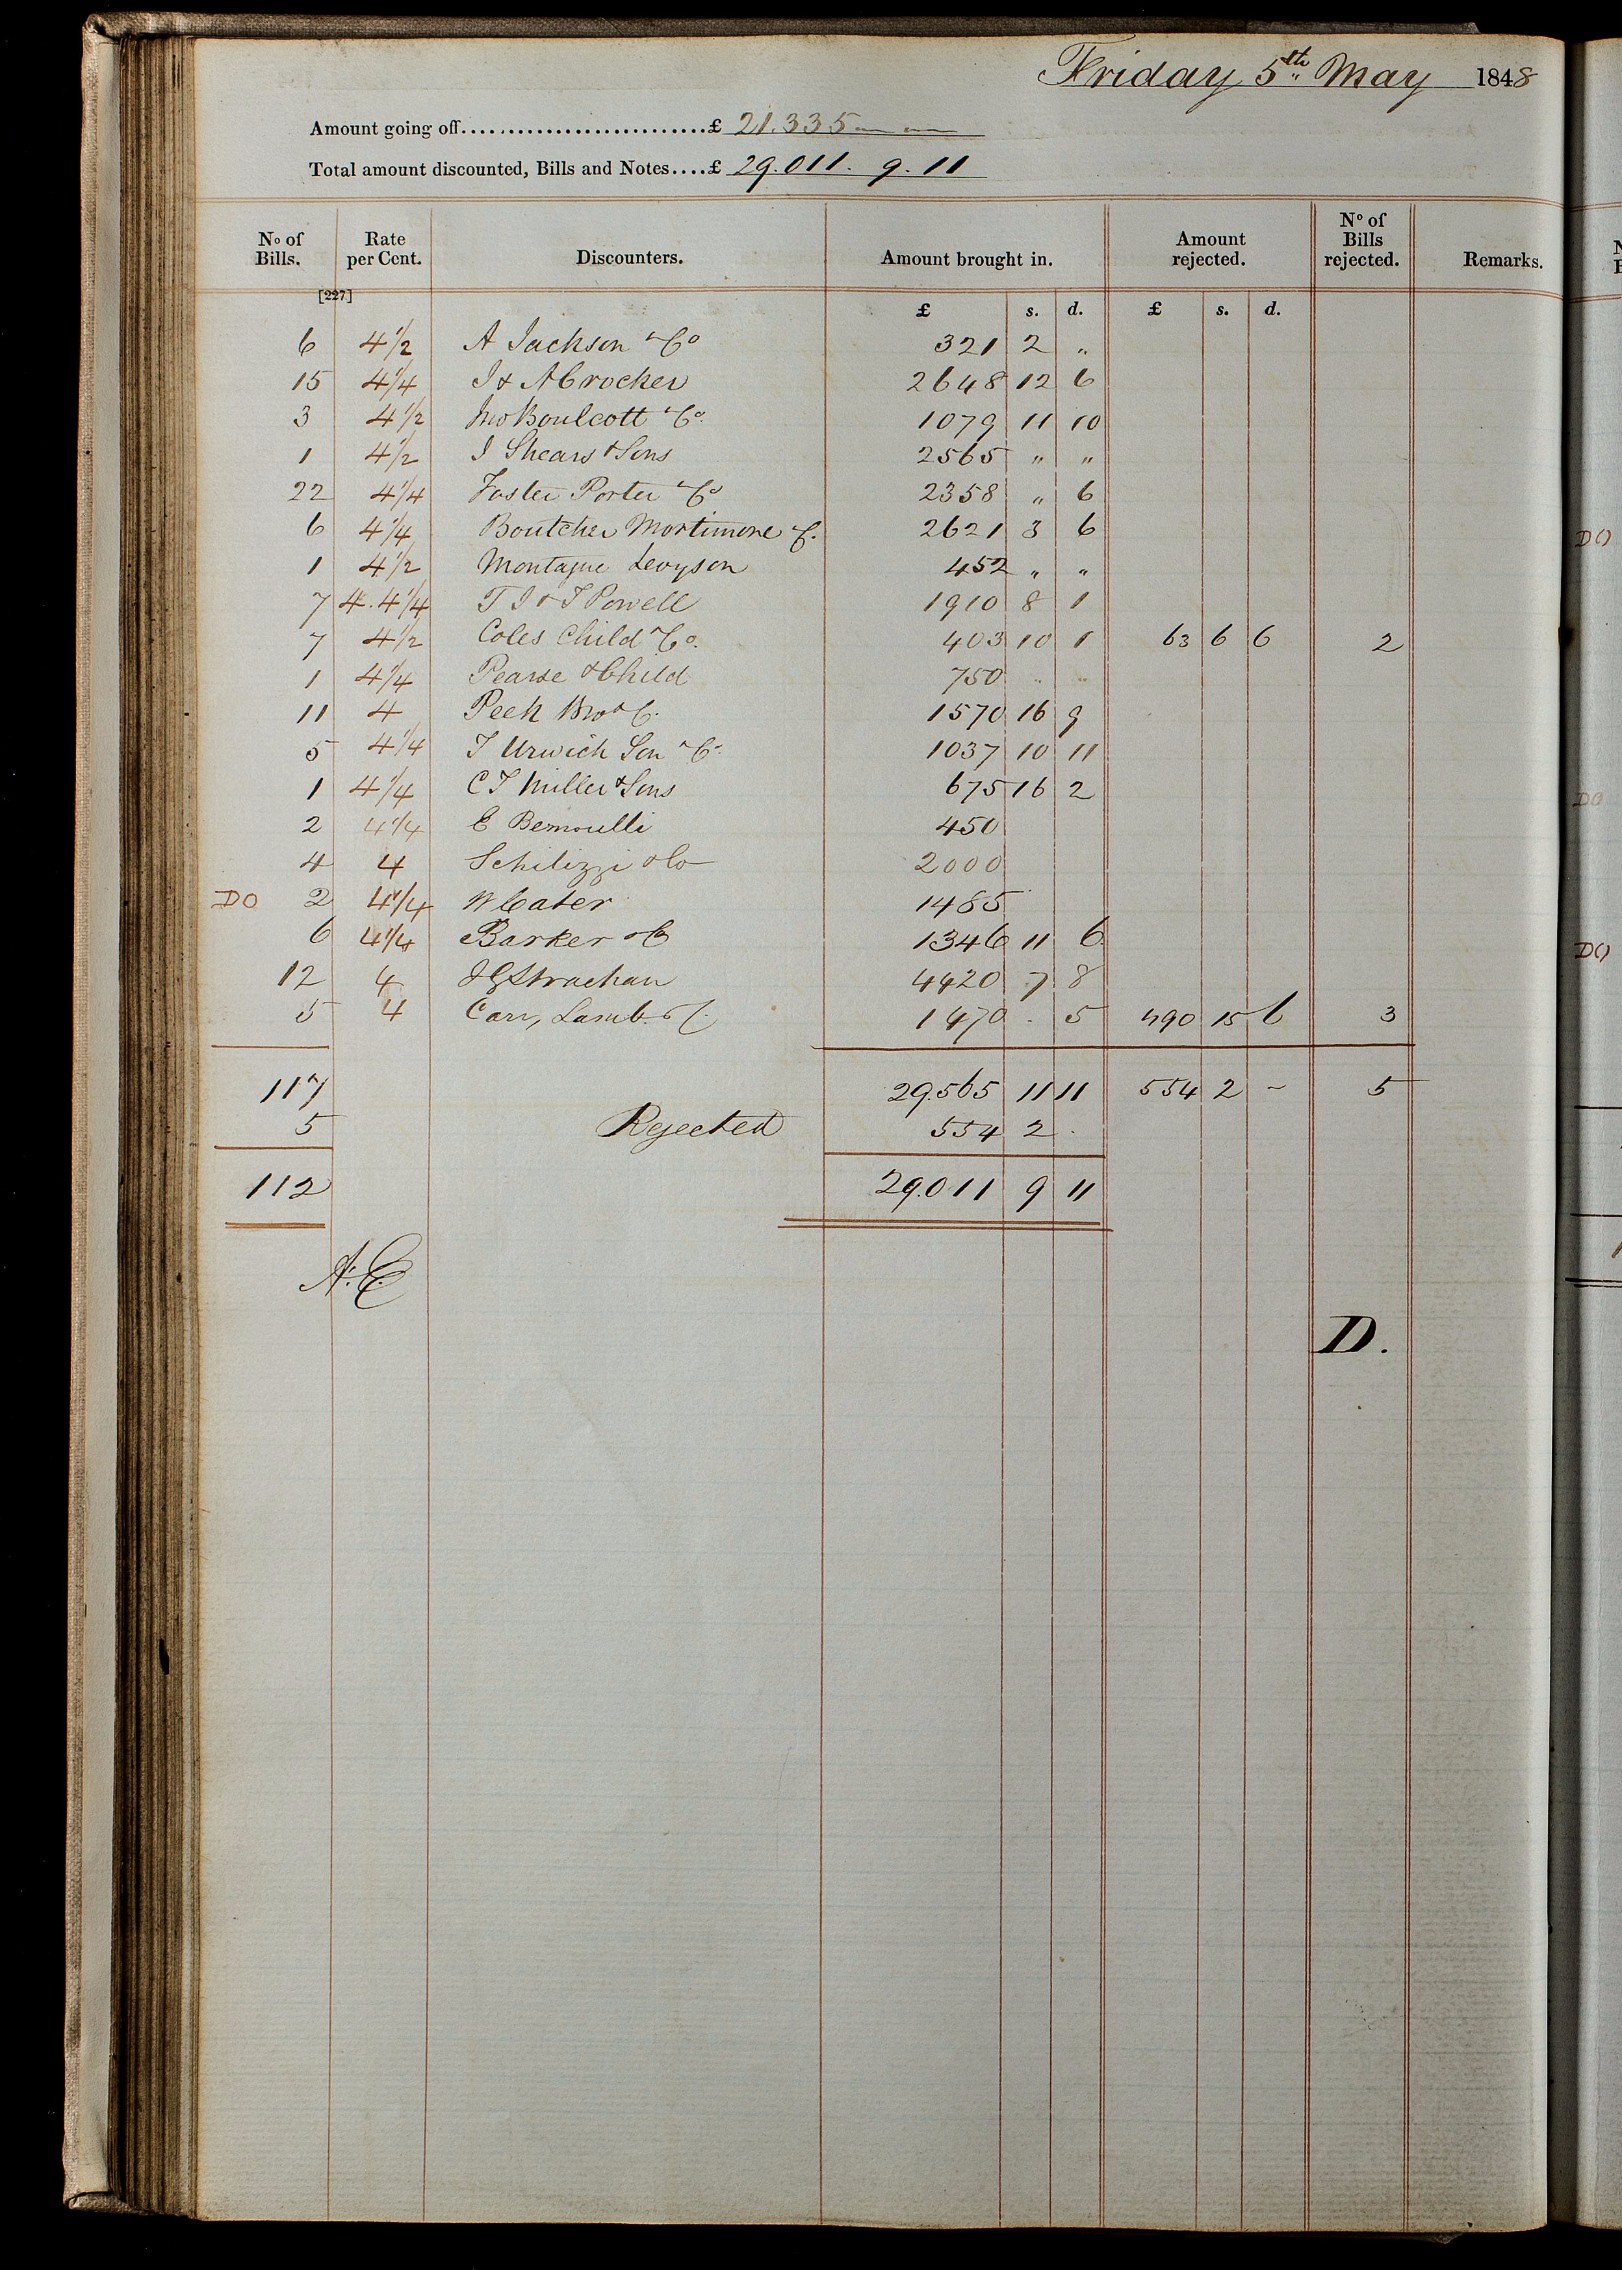 Friday 5th May 1848
Amount going off..........................£ 21.335
Total amount discounted, Bills and Notes....£ 29.011. 9. 11
No of Bills. Rate per Cent. Discounters. Amount brought in. Amount rejected. No of Bills rejected. Remarks.
[227]
£ s. d. £ s. d.
6 4 1/2 A Jackson & Co 321 2 "
15 4 1/4 J & A Crocker 2648 12 6
3 4 1/2 Jno Boulcott & Co. 1079 11 10
1 4 1/2 J Shears & Sons 2565 " "
22 4 1/4 Foster Porter & Co 2358 " 6
6 4 1/4 Boutcher Mortimore & C. 2621 3 6
1 4 1/2 Montague Levyson 452 " "
7 4. 4 1/4 T J & T Powell 1910 8 1
7 4 1/2 Coles Child & Co. 403 10 1 63 6 6 2
1 4 1/4 Pearse & Child 750 " "
11 4 Peek Bro & C. 1570 16 9
5 4 1/4 T Urwick Son & Co. 1037 10 11
1 4 1/4 C T Miller & Sons 675 16 2
2 4 1/4 E Bernoulli 450
4 4 Schilizzi & Co 2000
DO 2 4 1/4 W Cater 1485
6 4 1/4 Barker & C 1346 11 6
12 4 J G Strachan 4420 7 8
5 4 Carr, Lamb & C. 1470 . 5 490 15 6 3
117 29.565 11 11 554 2 - 5
5 Rejected 554 2 .
112 29.011 9 11
A.C
D.
DO
DO
DO